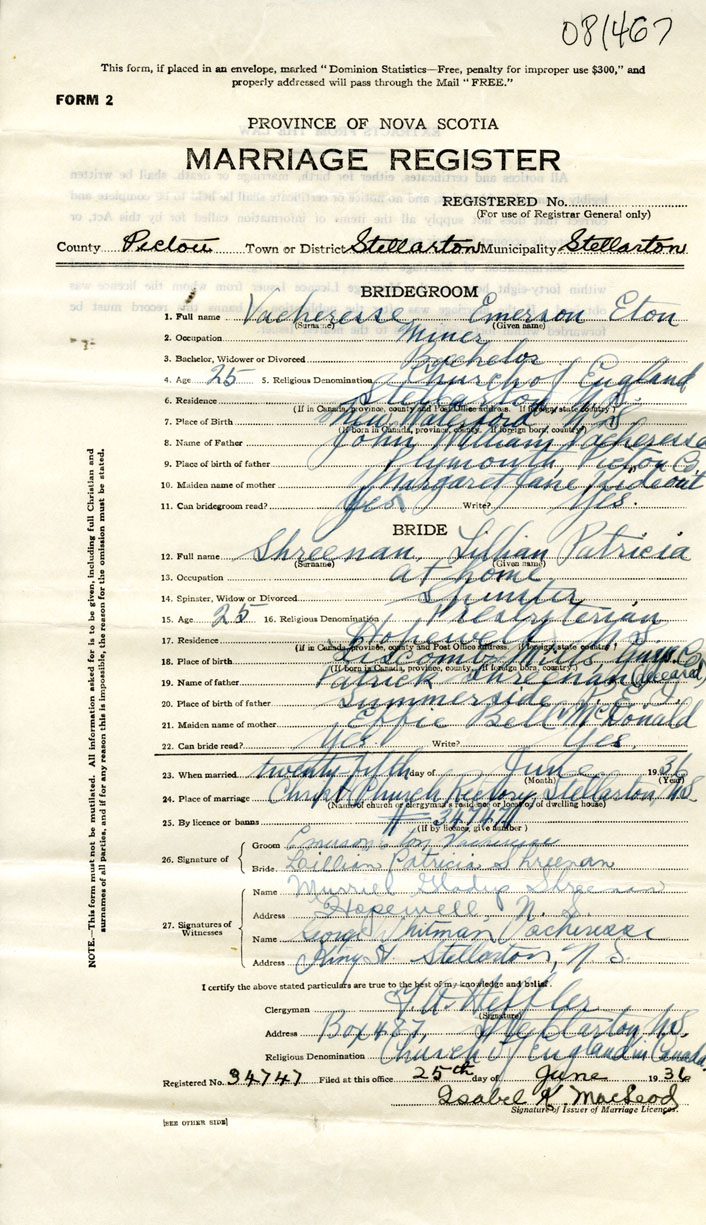 081467
This form, if placed in an envelope, marked "Dominion Statistics—Free, penalty for improper use $300," and
properly addressed will pass through the Mail "FREE."
FORM 2
PROVINCE OF NOVA SCOTIA
MARRIAGE REGISTER
REGISTERED No.
(For use of Registrar General only)
County Pictou Town or District Stellarton Municipality Stellarton
BRIDEGROOM
1. Full name Vacheresse Emerson Eton
(Surname) (Given name)
2. Occupation Miner
3. Bachelor, Widower or Divorced Bachelor
4. Age 25 5. Religious Denomination Church of England
6. Residence Stellarton N.S.
(If in Canada, province, county and Post Office address. If foreign, state country)
7. Place of Birth New Waterford N.S.
(If born in Canada, province, county. If foreign born, country)
8. Name of Father John William Vacheresse
9. Place of birth of father Plymouth Pictou Co.
10. Maiden name of mother Margaret Jane Rideout
11. Can bridegroom read? Yes Write? Yes.
BRIDE
12. Full name Shreenan Lillian Patricia
(Surname) (Given name)
13. Occupation at home
14. Spinster, Widow or Divorced Spinster
15. Age 25 16. Religious Denomination Presbyterian
17. Residence Hopewell N.S.
(If in Canada, province, county and Post Office address. If foreign, state country)
18. Place of birth Liscomb Mills Guys. Co.
(If born in Canada, province, county. If foreign born, country)
19. Name of father Patrick Shreenan (deceased)
20. Place of birth of father Summerside P.E.I.
21. Maiden name of mother Effie Bell McDonald
22. Can bride read? Yes Write? Yes.
23. When married twenty fifth day of June 1936
(Month) (Year)
24. Place of marriage Christ Church Rectory Stellarton, N.S.
(Name of church or clergyman's residence or local'y of dwelling house)
25. By licence or banns # 34747
(If by licence, give number)
26. Signature of
Groom Emerson Eton Vacheresse
Bride Lillian Patricia Shreenan
27. Signatures of Witnesses
Name Murriel Gladys Shreenan
Address Hopewell, N. S.
Name George Whitman Vacheresse
Address King St. Stellarton, N. S.
I certify the above stated particulars are true to the best of my knowledge and belief.
Clergyman Heffler
(Signature)
Address Box 487, Stellarton, N.S.
Religious Denomination Church of England in Canada
Registered No. 34747 Filed at this office 25th day of June 1936
Isabel K. MacLeod
Signature of Issuer of Marriage Licences.
[SEE OTHER SIDE]
NOTE.—This form must not be mutilated. All information asked for is to be given, including full Christian and
surnames of all parties, and if for any reason this is impossible, the reason for the omission must be stated.